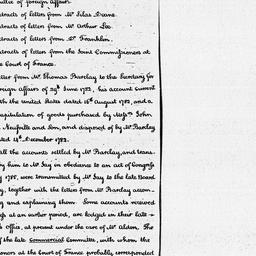 ttee of foreign affairs.
tracts of letters from Mr Silas Deane.
tracts of letters from Mr Arthur Lee
tracts of letters from Dr Franklin.
tracts of letters from the Joint Commissioners at
e Court of France.
etter from Mr Thomas Barclay to the Secretary for
reign affairs of 29th June 1782, his account current
ith the United States dated 16th August 1782, and a
apitulation of goods purchased by Messrs John
Neufville and Son, and disposed of by Mr Barclay
ated 14th December 1782.
all the accounts settled by Mr Barclay, and trans-
by him to Mr Jay in obedience to an act of Congress
y 1785, were transmitted by Mr Jay to the late Board
y, together with the letters from Mr Barclay accom-
g and explaining them. Some accounts received
gs at an earlier period, are lodged in their late
s office, at present under the care of Mr Alden. The
of the late Commercial Committee, with whom the
oners at the Court of France probably corresponded